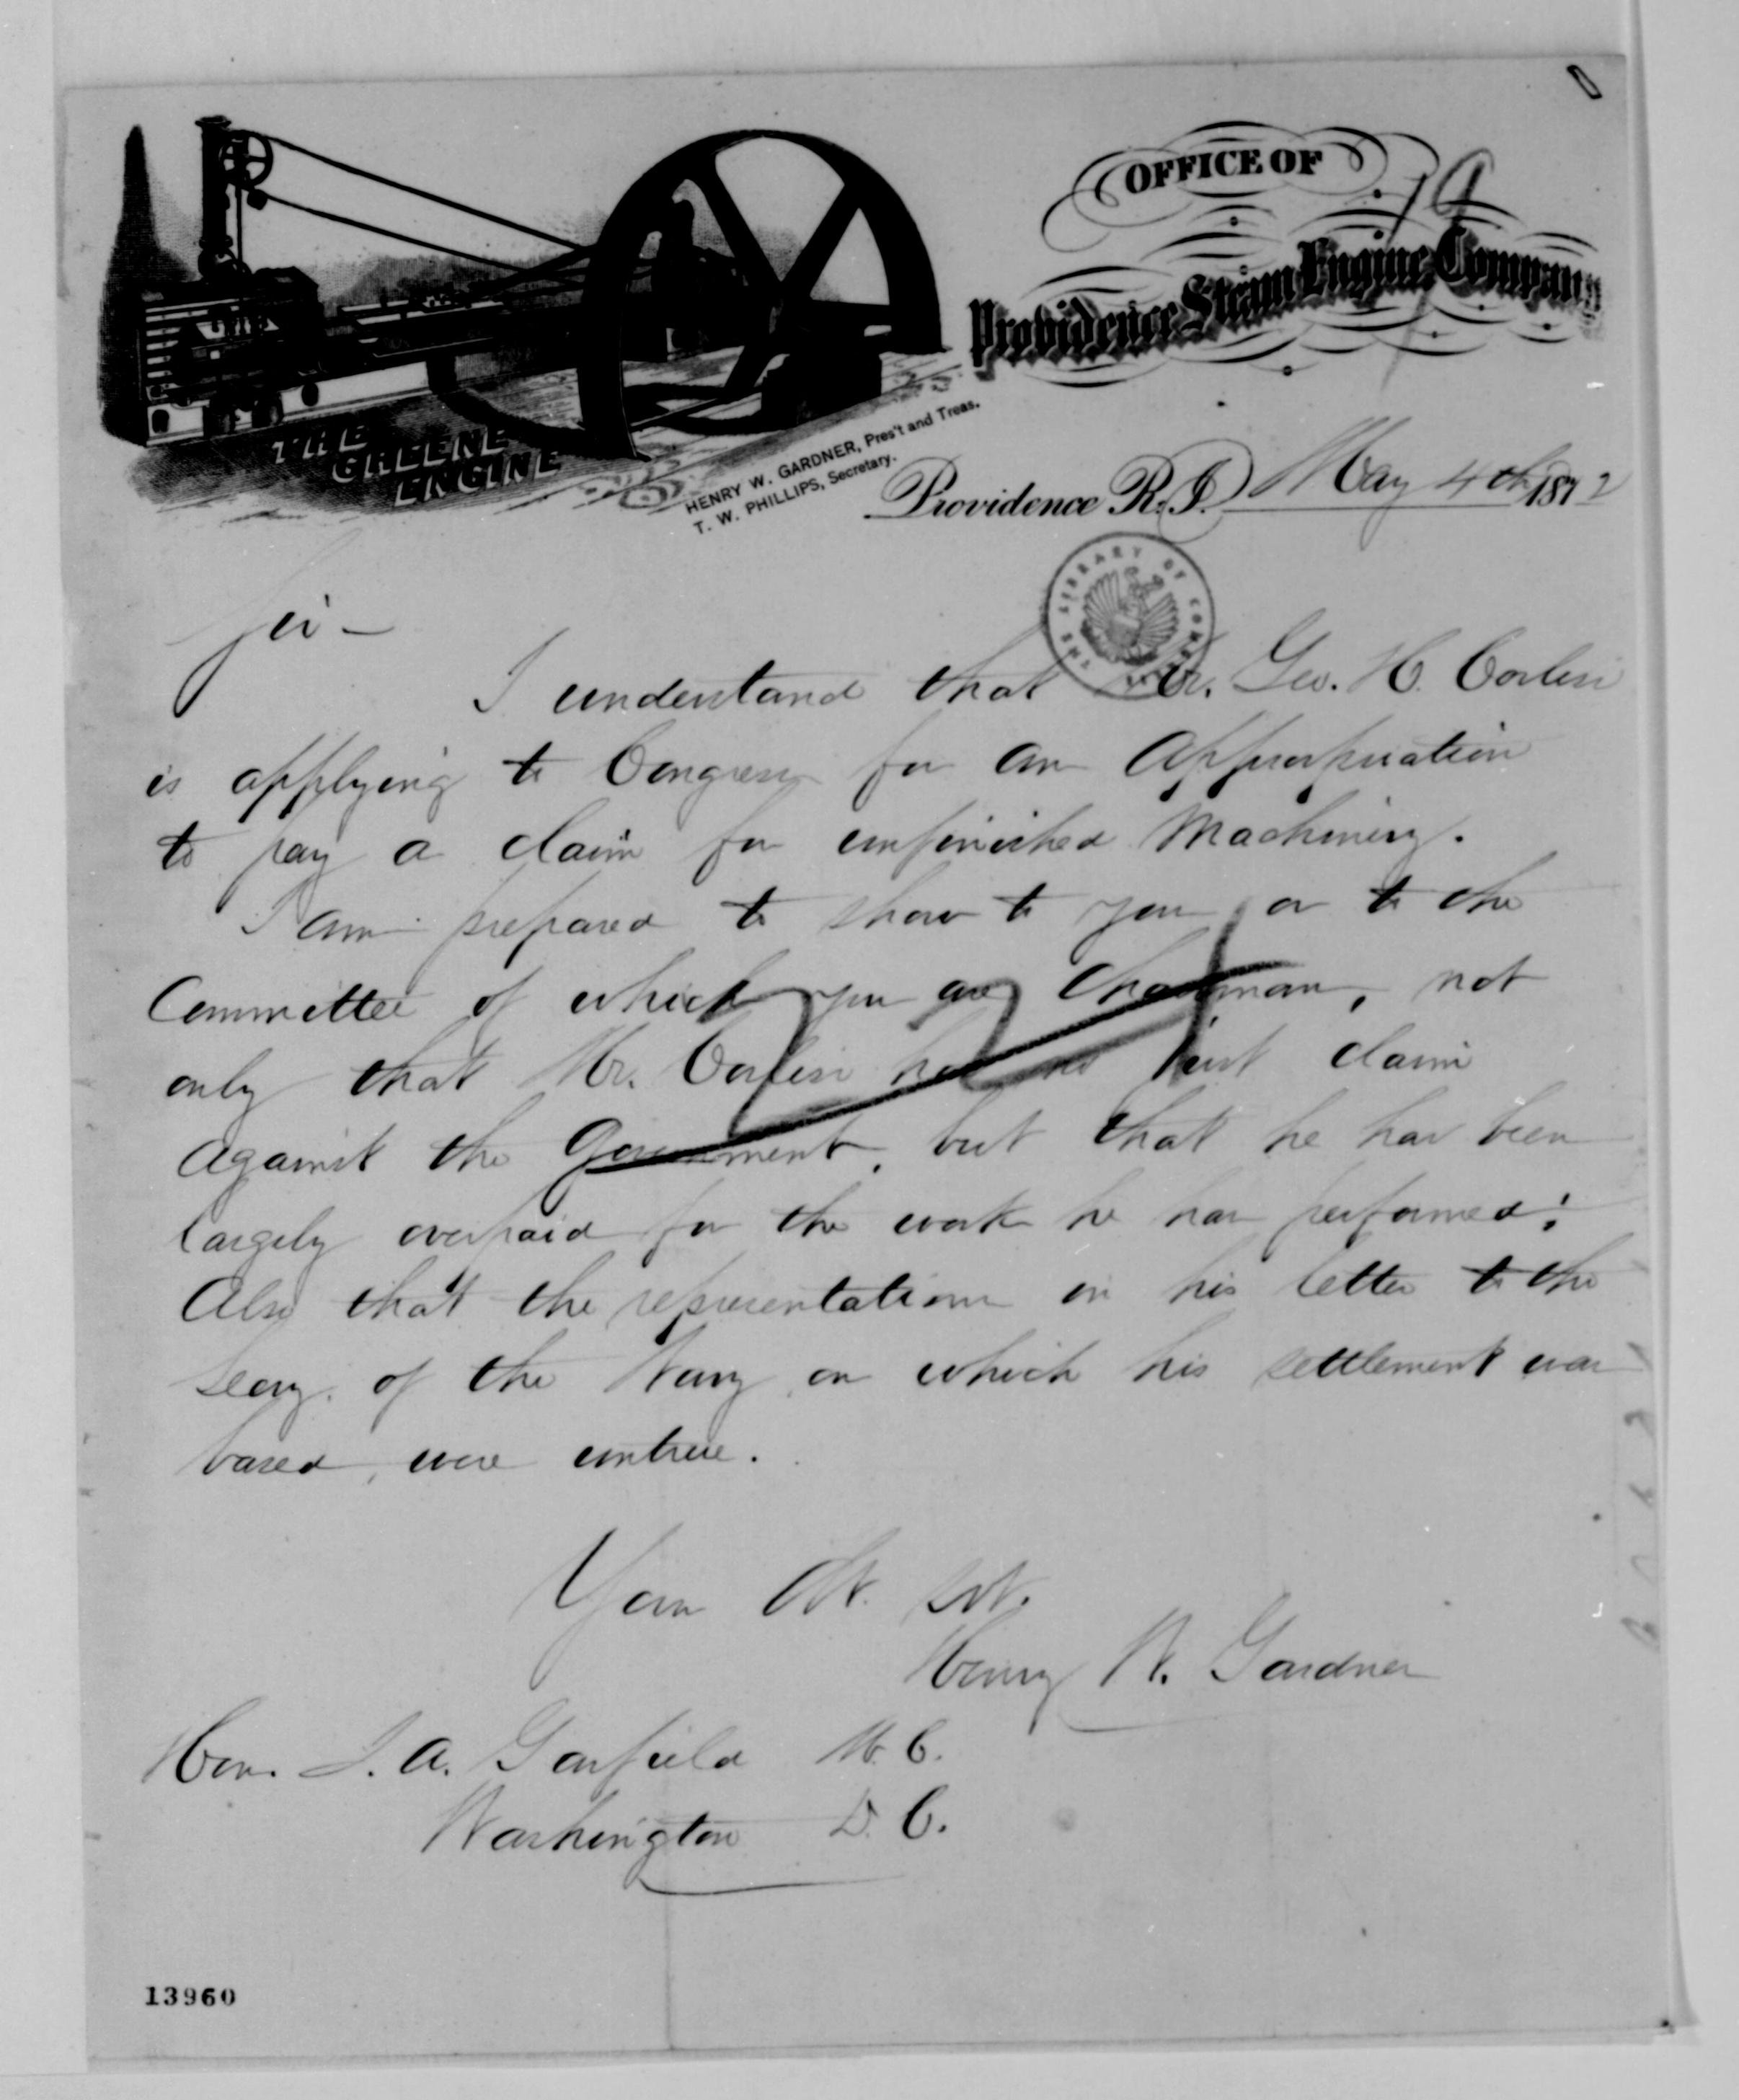 OFFICE OF
Providence Steam Engine Company
19
THE
GREENE
ENGINE
HENRY W. GARDNER, Pres't and Treas.
T. W. PHILLIPS, Secretary.
Providence R. I. May 4th 1872
THE LIBRARY OF CONGRESS
Sir -
I understand that Mr. Geo. H. Corliss
is applying to Congress for an Appropriation
to pay a claim for unfinished Machinery.
I am prepared to show to you, or to the
Committee of which you are Chairman, not
only that Mr. Corliss has no just claim
against the Government, but that he has been
largely overpaid for the work he has performed;
Also that the representations in his letter to the
Secy. of the Navy on which his settlement was
based, were untrue.
Your Obt. Svt.
Henry W. Gardner
Hon. J. A. Garfield M. C.
Washington D. C.
13960